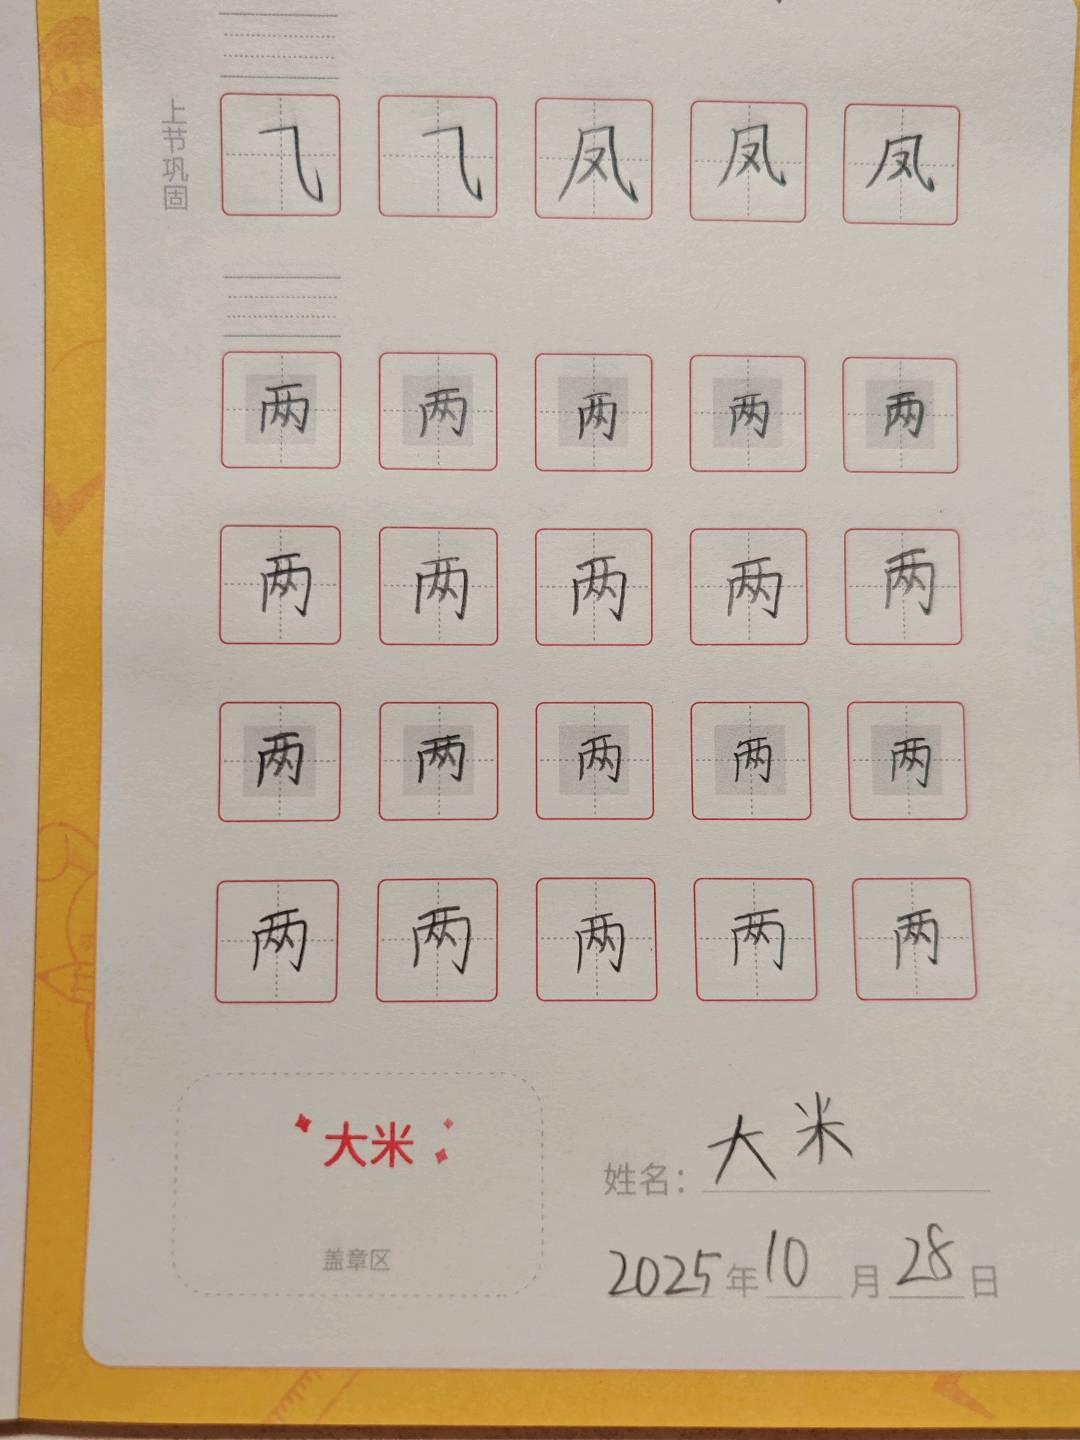 上节巩固
⺄ ⺄ 凤 凤 凤
两 两 两 两 两
两 两 两 两 两
两 两 两 两 两
两 两 两 两 两
大米
盖章区
姓名：大米
2025年10月28日